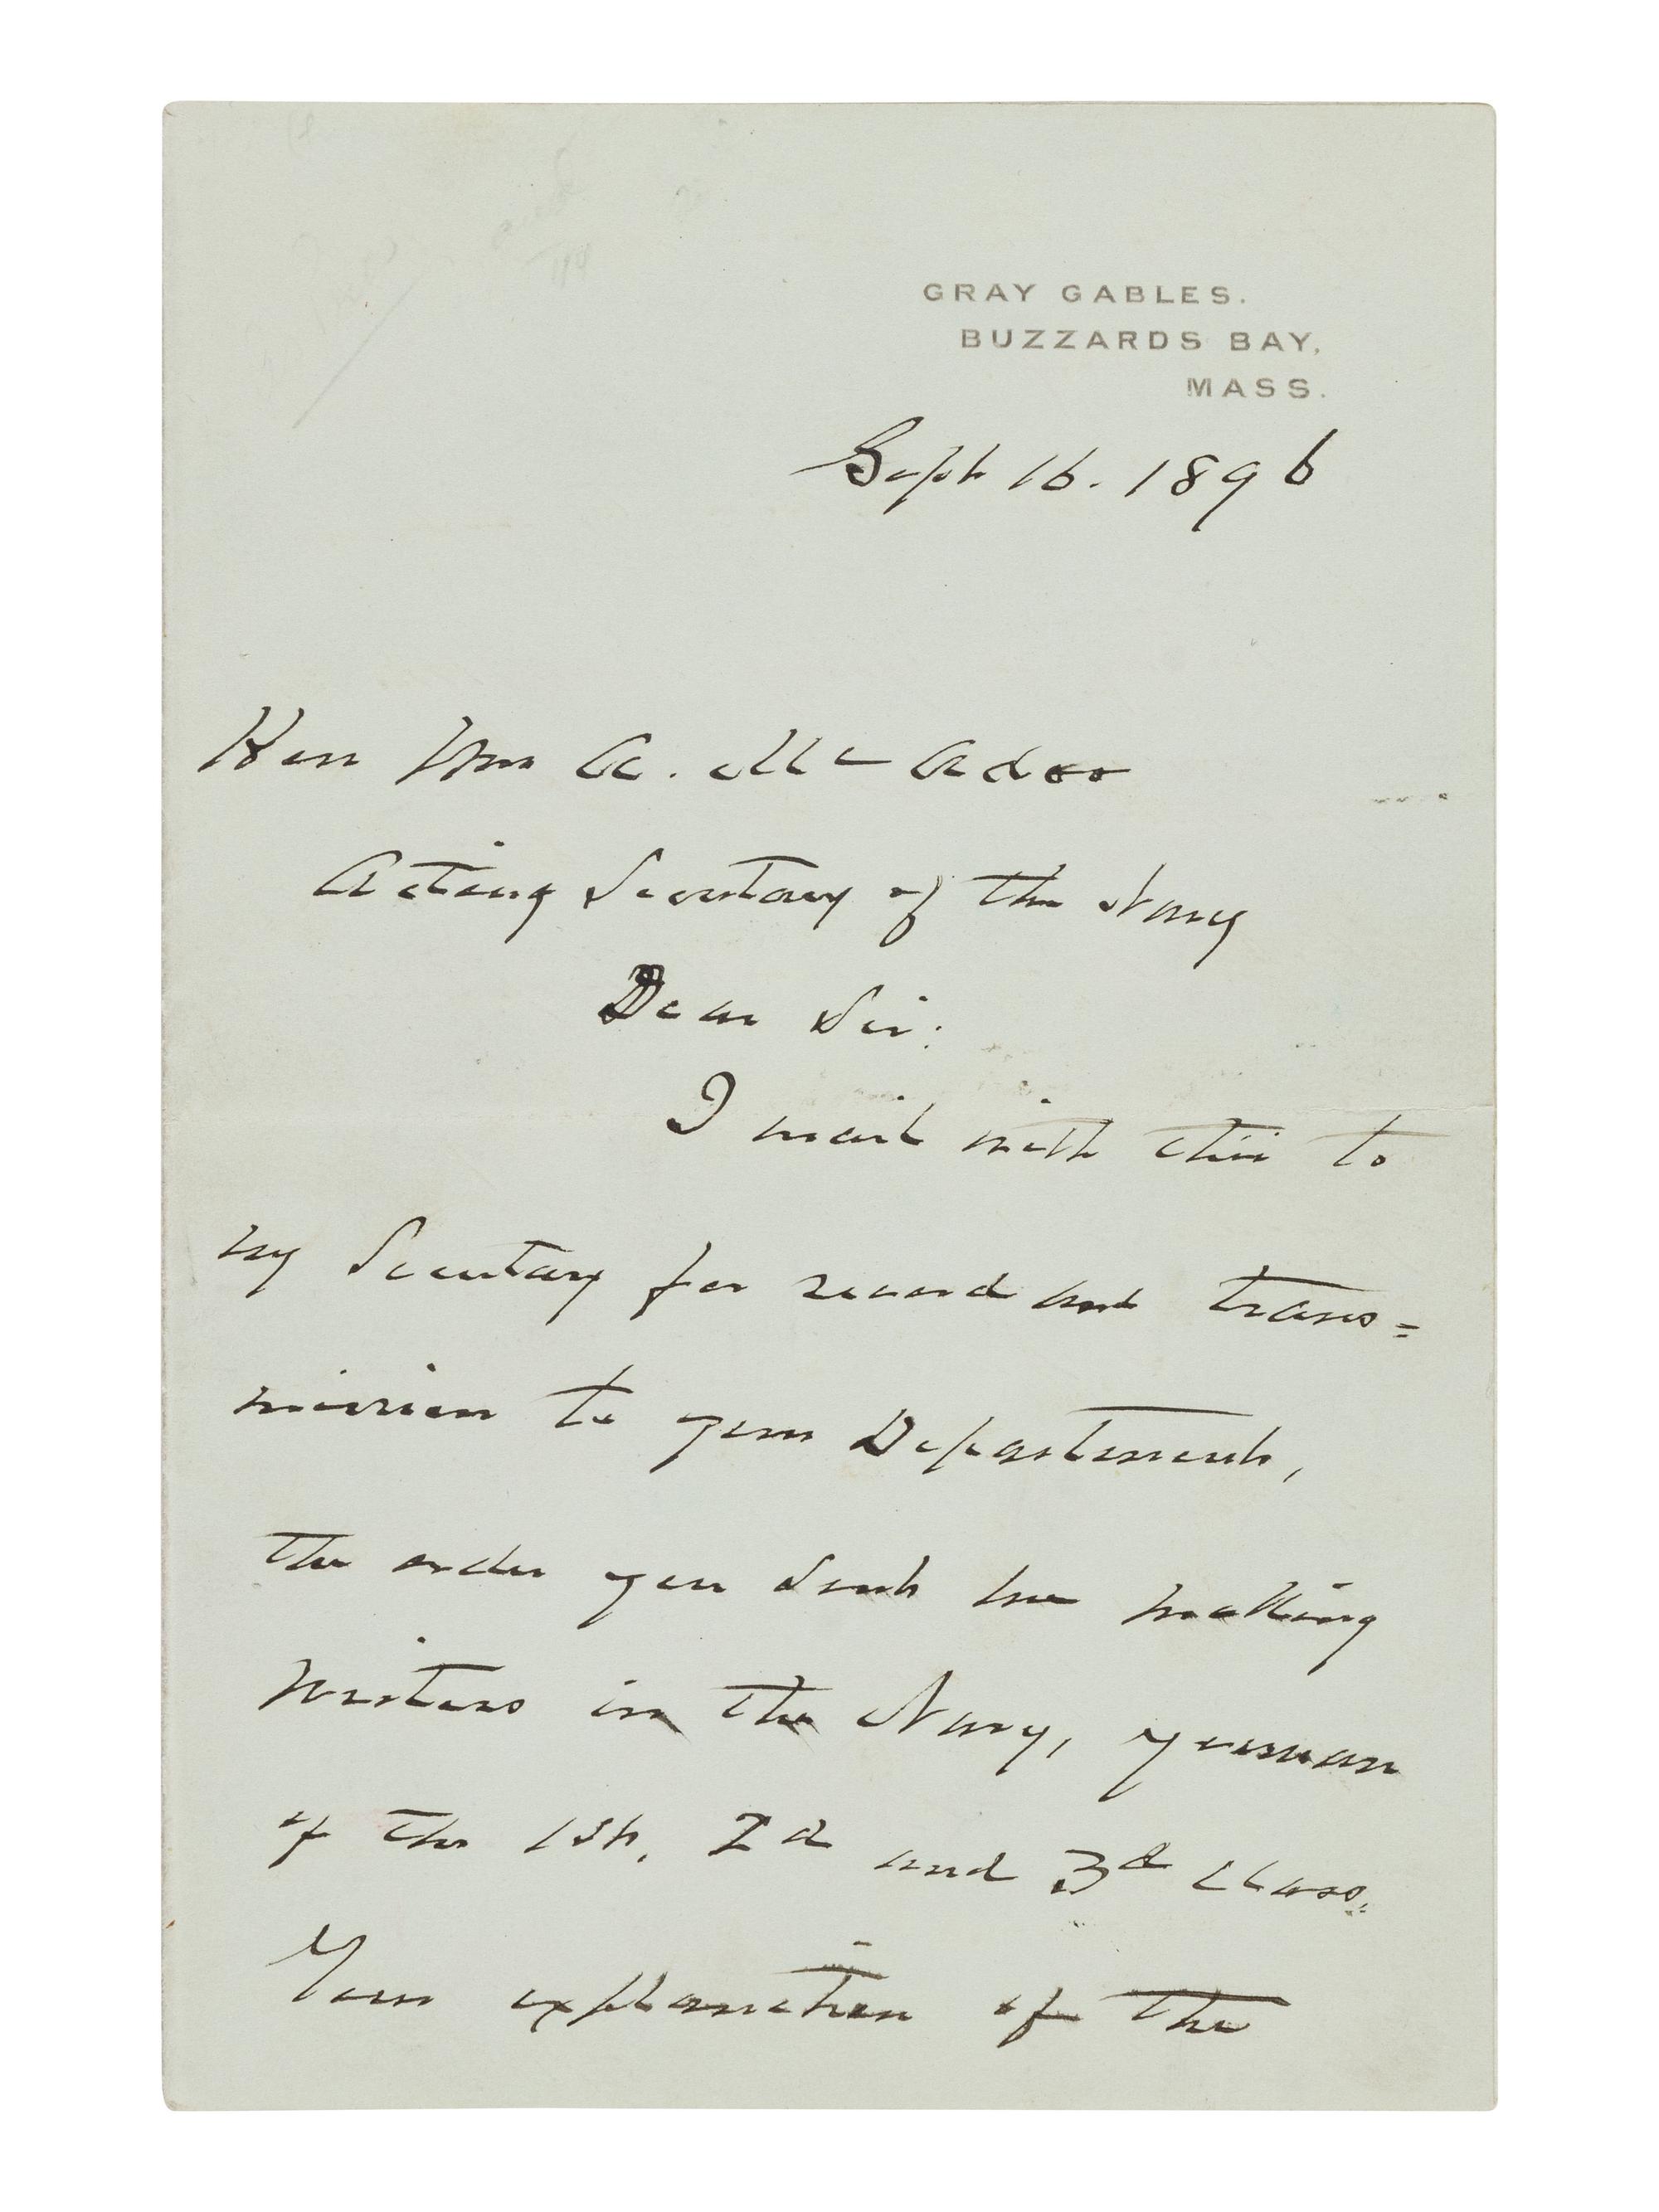 GRAY GABLES.
BUZZARDS BAY,
MASS.
Sept 16. 1896
Hon Wm A. McAdoo
Acting Secretary of the Navy
Dear Sir:
I mail with this to
my Secretary for record and trans=
mission to your Department,
the order you sent me making
writers in the Navy, yeoman
of the 1st, 2d and 3d class.
Your explanation of the